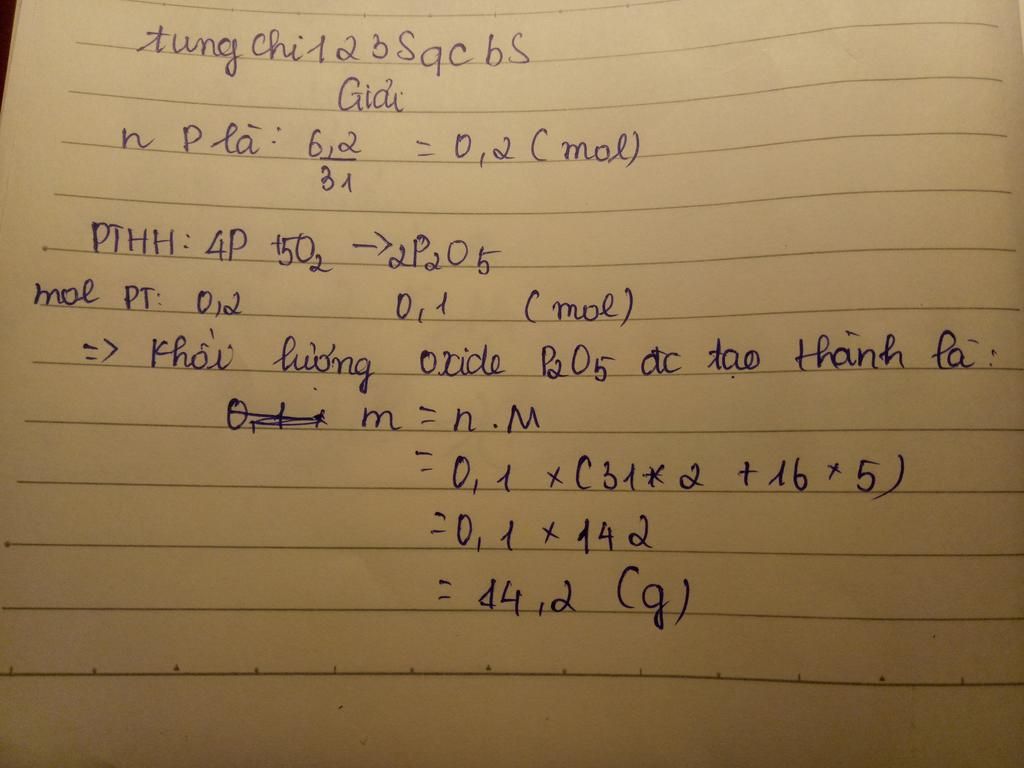 tungchi123SqcbS
Giải
n P là: 6,2/31 = 0,2 (mol)
PTHH: 4P +5O2 -> 2P2O5
mol PT: 0,2 0,1 (mol)
=> Khối lượng oxide P2O5 đc tạo thành là:
m = n.M
= 0,1 × (31 × 2 + 16 × 5)
= 0,1 × 142
= 14,2 (g)